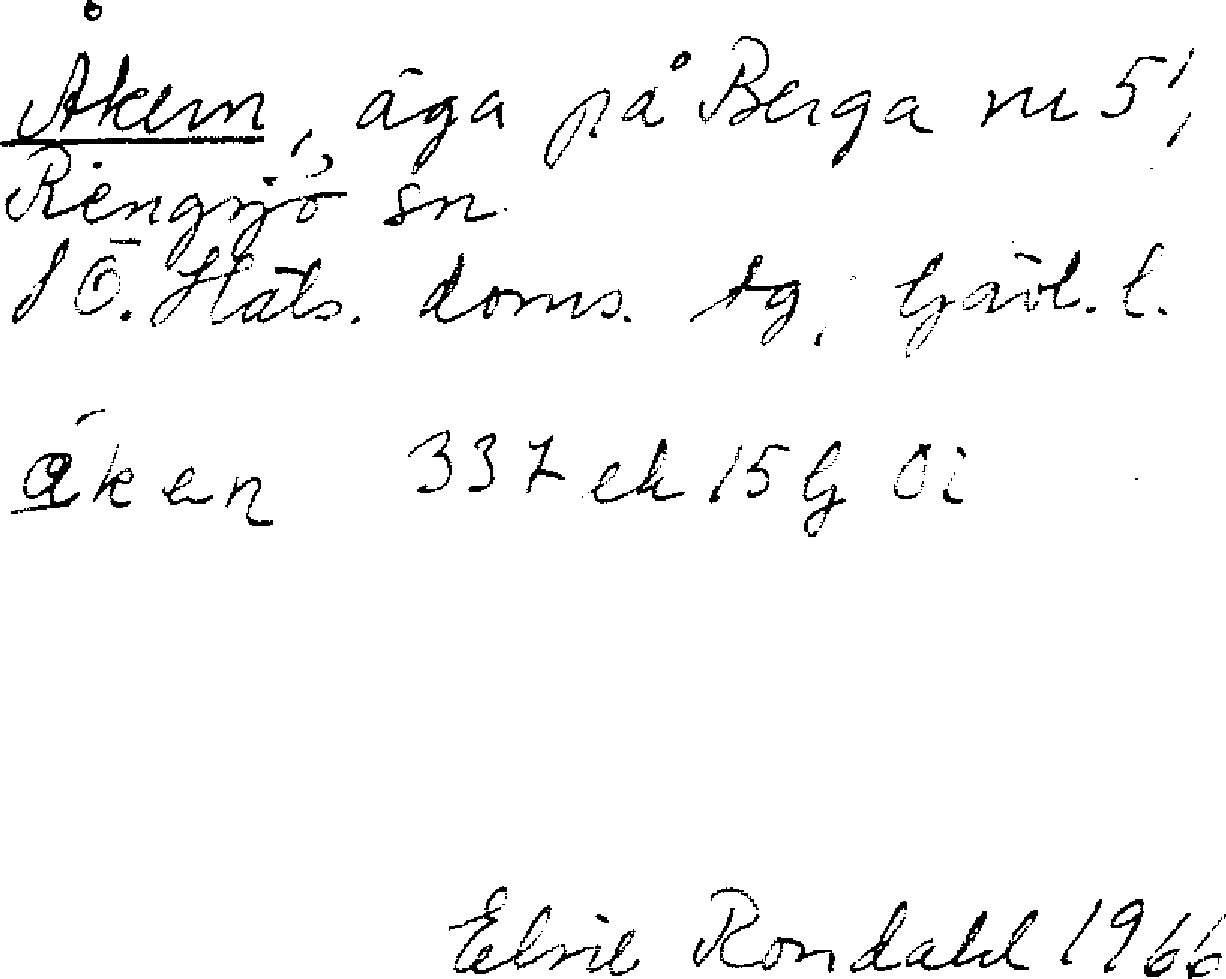 Åkern, äga på Berga nr 5,
Rengsjö sn
S Ö. Häls. doms. tg, Gävl. l.
åken 337 ek 15 G Öi
Elvie Rondahl 1966